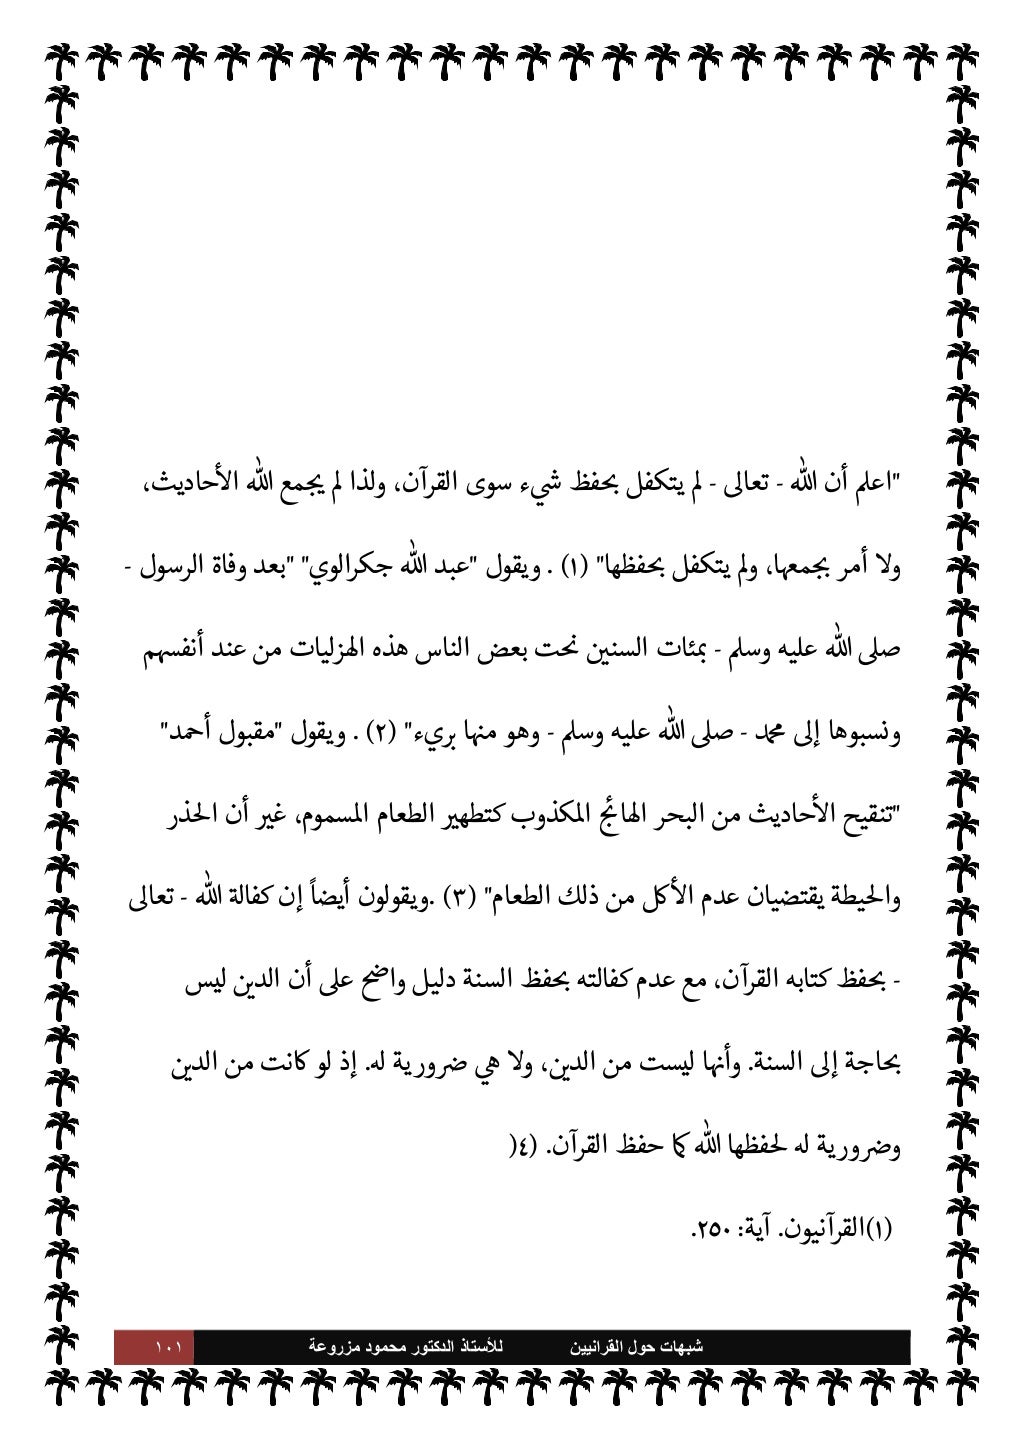 "اعلم أن الله - تعالى - لم يتكفل بحفظ شيء سوى القرآن، ولذا لم يجمع الله الأحاديث،
ولا أمر بجمعها، ولم يتكفل بحفظها" (١) . ويقول "عبد الله جكرالوي" "بعد وفاة الرسول -
صلى الله عليه وسلم - بمئات السنين نحت بعض الناس هذه الهزليات من عند أنفسهم
ونسبوها إلى محمد - صلى الله عليه وسلم - وهو منها بريء" (٢) . ويقول "مقبول أحمد"
"تنقيح الأحاديث من البحر الهائج المكذوب كتطهير الطعام المسموم، غير أن الحذر
والحيطة يقتضيان عدم الأكل من ذلك الطعام" (٣) .ويقولون أيضاً إن كفالة الله - تعالى
- بحفظ كتابه القرآن، مع عدم كفالته بحفظ السنة دليل واضح على أن الدين ليس
بحاجة إلى السنة. وأنها ليست من الدين، ولا هي ضرورية له. إذ لو كانت من الدين
وضرورية له لحفظها الله كما حفظ القرآن. (٤(
(١)القرآنيون. آية: ٢٥٠.
شبهات حول القرانيين للأستاذ الدكتور محمود مزروعة ١٠١